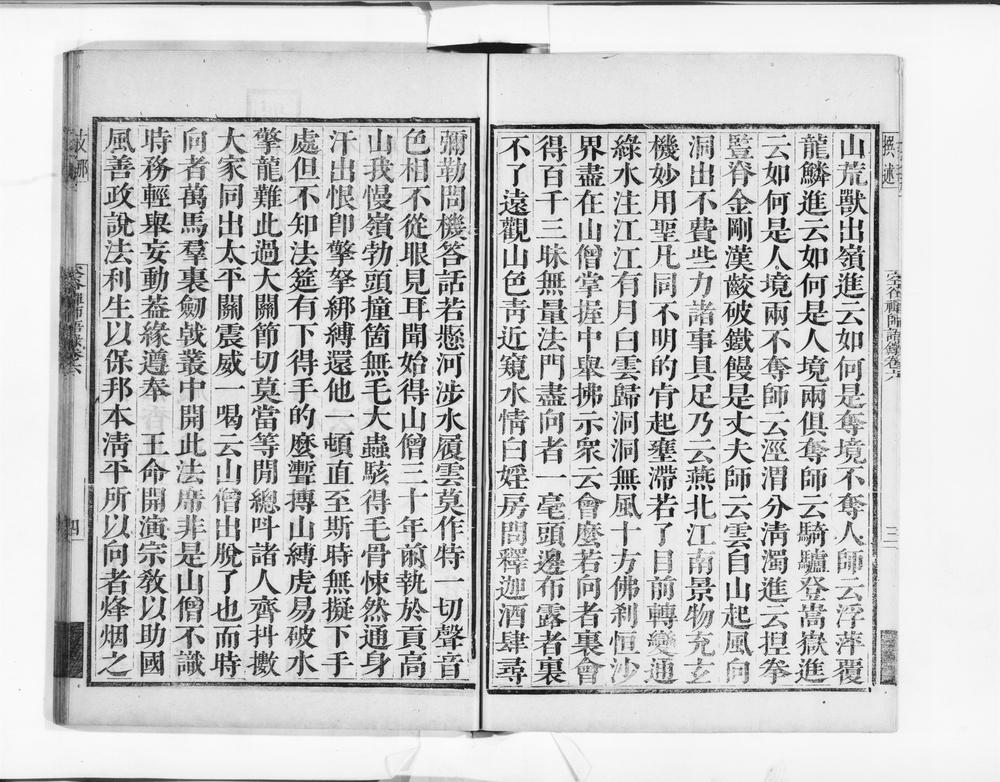 撰述
山荒獸出嶺進云如何是奪境不奪人師云浮萍覆
龍鱗進云如何是人境兩俱奪師云騎驢登嵩嶽進
云如何是人境兩不奪師云涇渭分清濁進云捏拳
豎脊金剛漢齩破鐵饅是丈夫師云雲自山起風向
洞出不費些力諸事具足乃云燕北江南景物充玄
機妙用聖凡同不明的肯起壅滯若了目前轉變通
綠水注江江有月白雲歸洞洞無風十方佛剎恒沙
界盡在山僧掌握中舉拂示衆云會麼若向者裏會
得百千三昧無量法門盡向者一毫頭邊布露者裏
不了遠觀山色靑近窺水情白婬房問釋迦酒肆尋
禪師語錄卷六
三
彌勒問機答話若懸河涉水履雲莫作特一切聲音
色相不從眼見耳聞始得山僧三十年前執於貢高
山我慢嶺勃頭撞箇無毛大蟲駭得毛骨悚然通身
汗出恨卽擎拏綁縛還他一頓直至斯時無擬下手
處但不知法筵有下得手的麼蹔搏山縛虎易破水
擎龍難此過大關節切莫當等閒總呌諸人齊抖擻
大家同出太平關震威一喝云山僧出脫了也而時
向者萬馬羣裏劒戟叢中開此法席非是山僧不識
時務輕舉妄動葢緣遵奉　王命開演宗敎以助國
風善政說法利生以保邦本淸平所以向者烽烟之
四